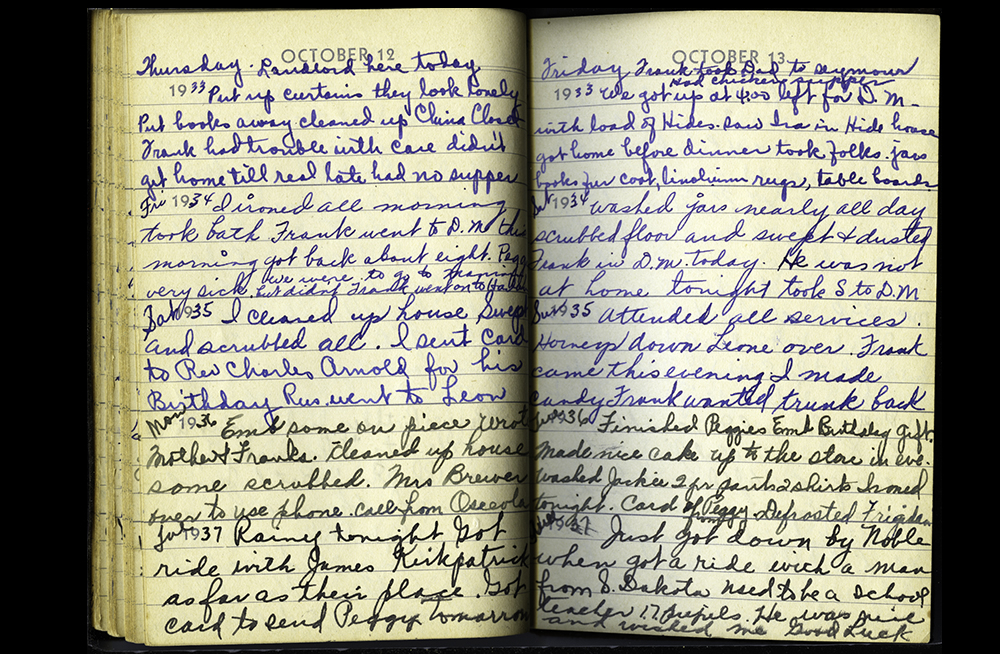 OCTOBER 12
Thursday. Landlord here today
1933 Put up curtains they look lonely
Put books away cleaned up China Closet
Frank had trouble with care didn't
get home till real late had no supper
Fri 1934 I ironed all morning
took bath Frank went to D.M this
morning got back about eight. Peggy
we were to go to
very sick. but didn't Frank went on to
Sat 1935 I cleaned up house Swept
and scrubbed all. I sent card
to Rev Charles Arnold for his
Birthday Rus. went to Leon
Mon 1936 Emb some on piece wrote
Mother & Franks. Cleaned up house
some scrubbed. Mrs Brewer
over to use phone. call from Osceola
Tu 1937 Rainy tonight Got
ride with James Kirkpatrick
as far as their place. Got
card to send Peggy tomorrow
OCTOBER 13
Friday Frank took Dad to Seymour
Had chicken supper
1933 We got up at 4:00 left for D.M-
with load of Hides. saw Ira in Hide house
got home before dinner took folks. jars
books fur coat, linolium rugs, table boards
Sat 1934 washed jars nearly all day
scrubbed floor and swept & dusted
Frank in D.M. today. He was not
at home tonight took S to D.M
Sun 1935 Attended all services.
Horneys down Leone over. Frank
came this evening I made
candy Frank wanted trunk back
Tu 1936 Finished Peggies Emb Birthday Gift.
Made nice cake up to the store in eve.
washed Jackie 2 pr pants 2 shirts Ironed
tonight. Card of Peggy Defrosted Frigidaire
1937 Just got down by Noble
when got a ride with a man
from S. Dakota used to be a school
teacher 17 pupils. He was nice
and wished me Good Luck